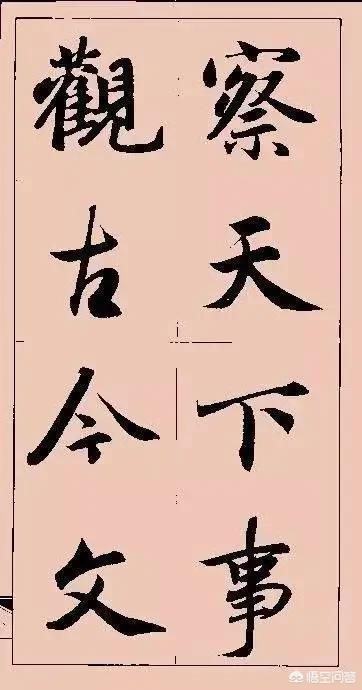 察天下事
觀古今文
悟空问答